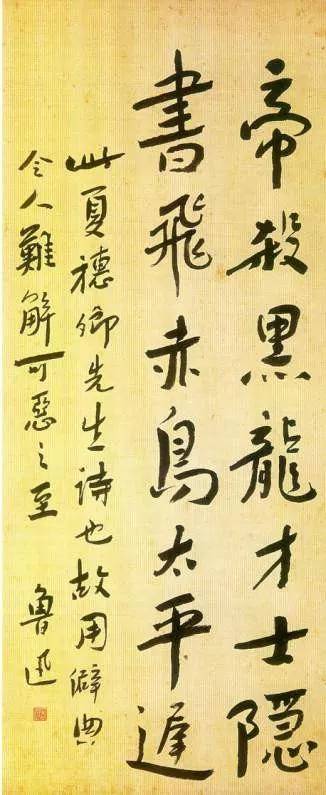 帝殺黑龍才士隱
書飛赤鳥太平遲
此夏穗卿先生詩也故用僻典
令人難解可惡之至
魯迅